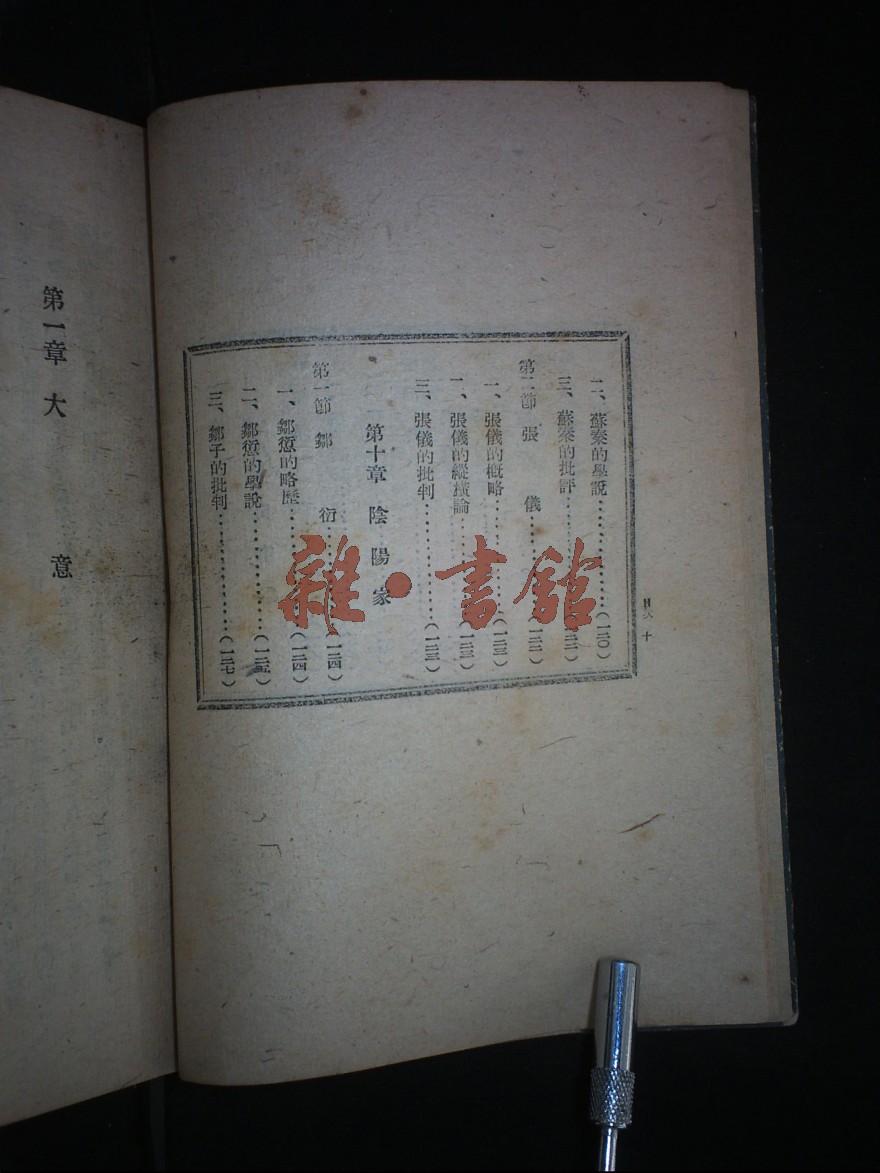 二、蘇秦的學說…………(一二〇)
三、蘇秦的批評…………(一二二)
第二節 張 儀…………(一二二)
一、張儀的概略…………(一二三)
二、張儀的縱橫論…………(一二三)
三、張儀的批判…………(一二三)
第十章 陰陽家
第一節 鄒 衍…………(一二四)
一、鄒衍的略歷…………(一二四)
二、鄒衍的學說…………(一二五)
三、鄒子的批判…………(一二七)
第一章 大 意
雜·書館